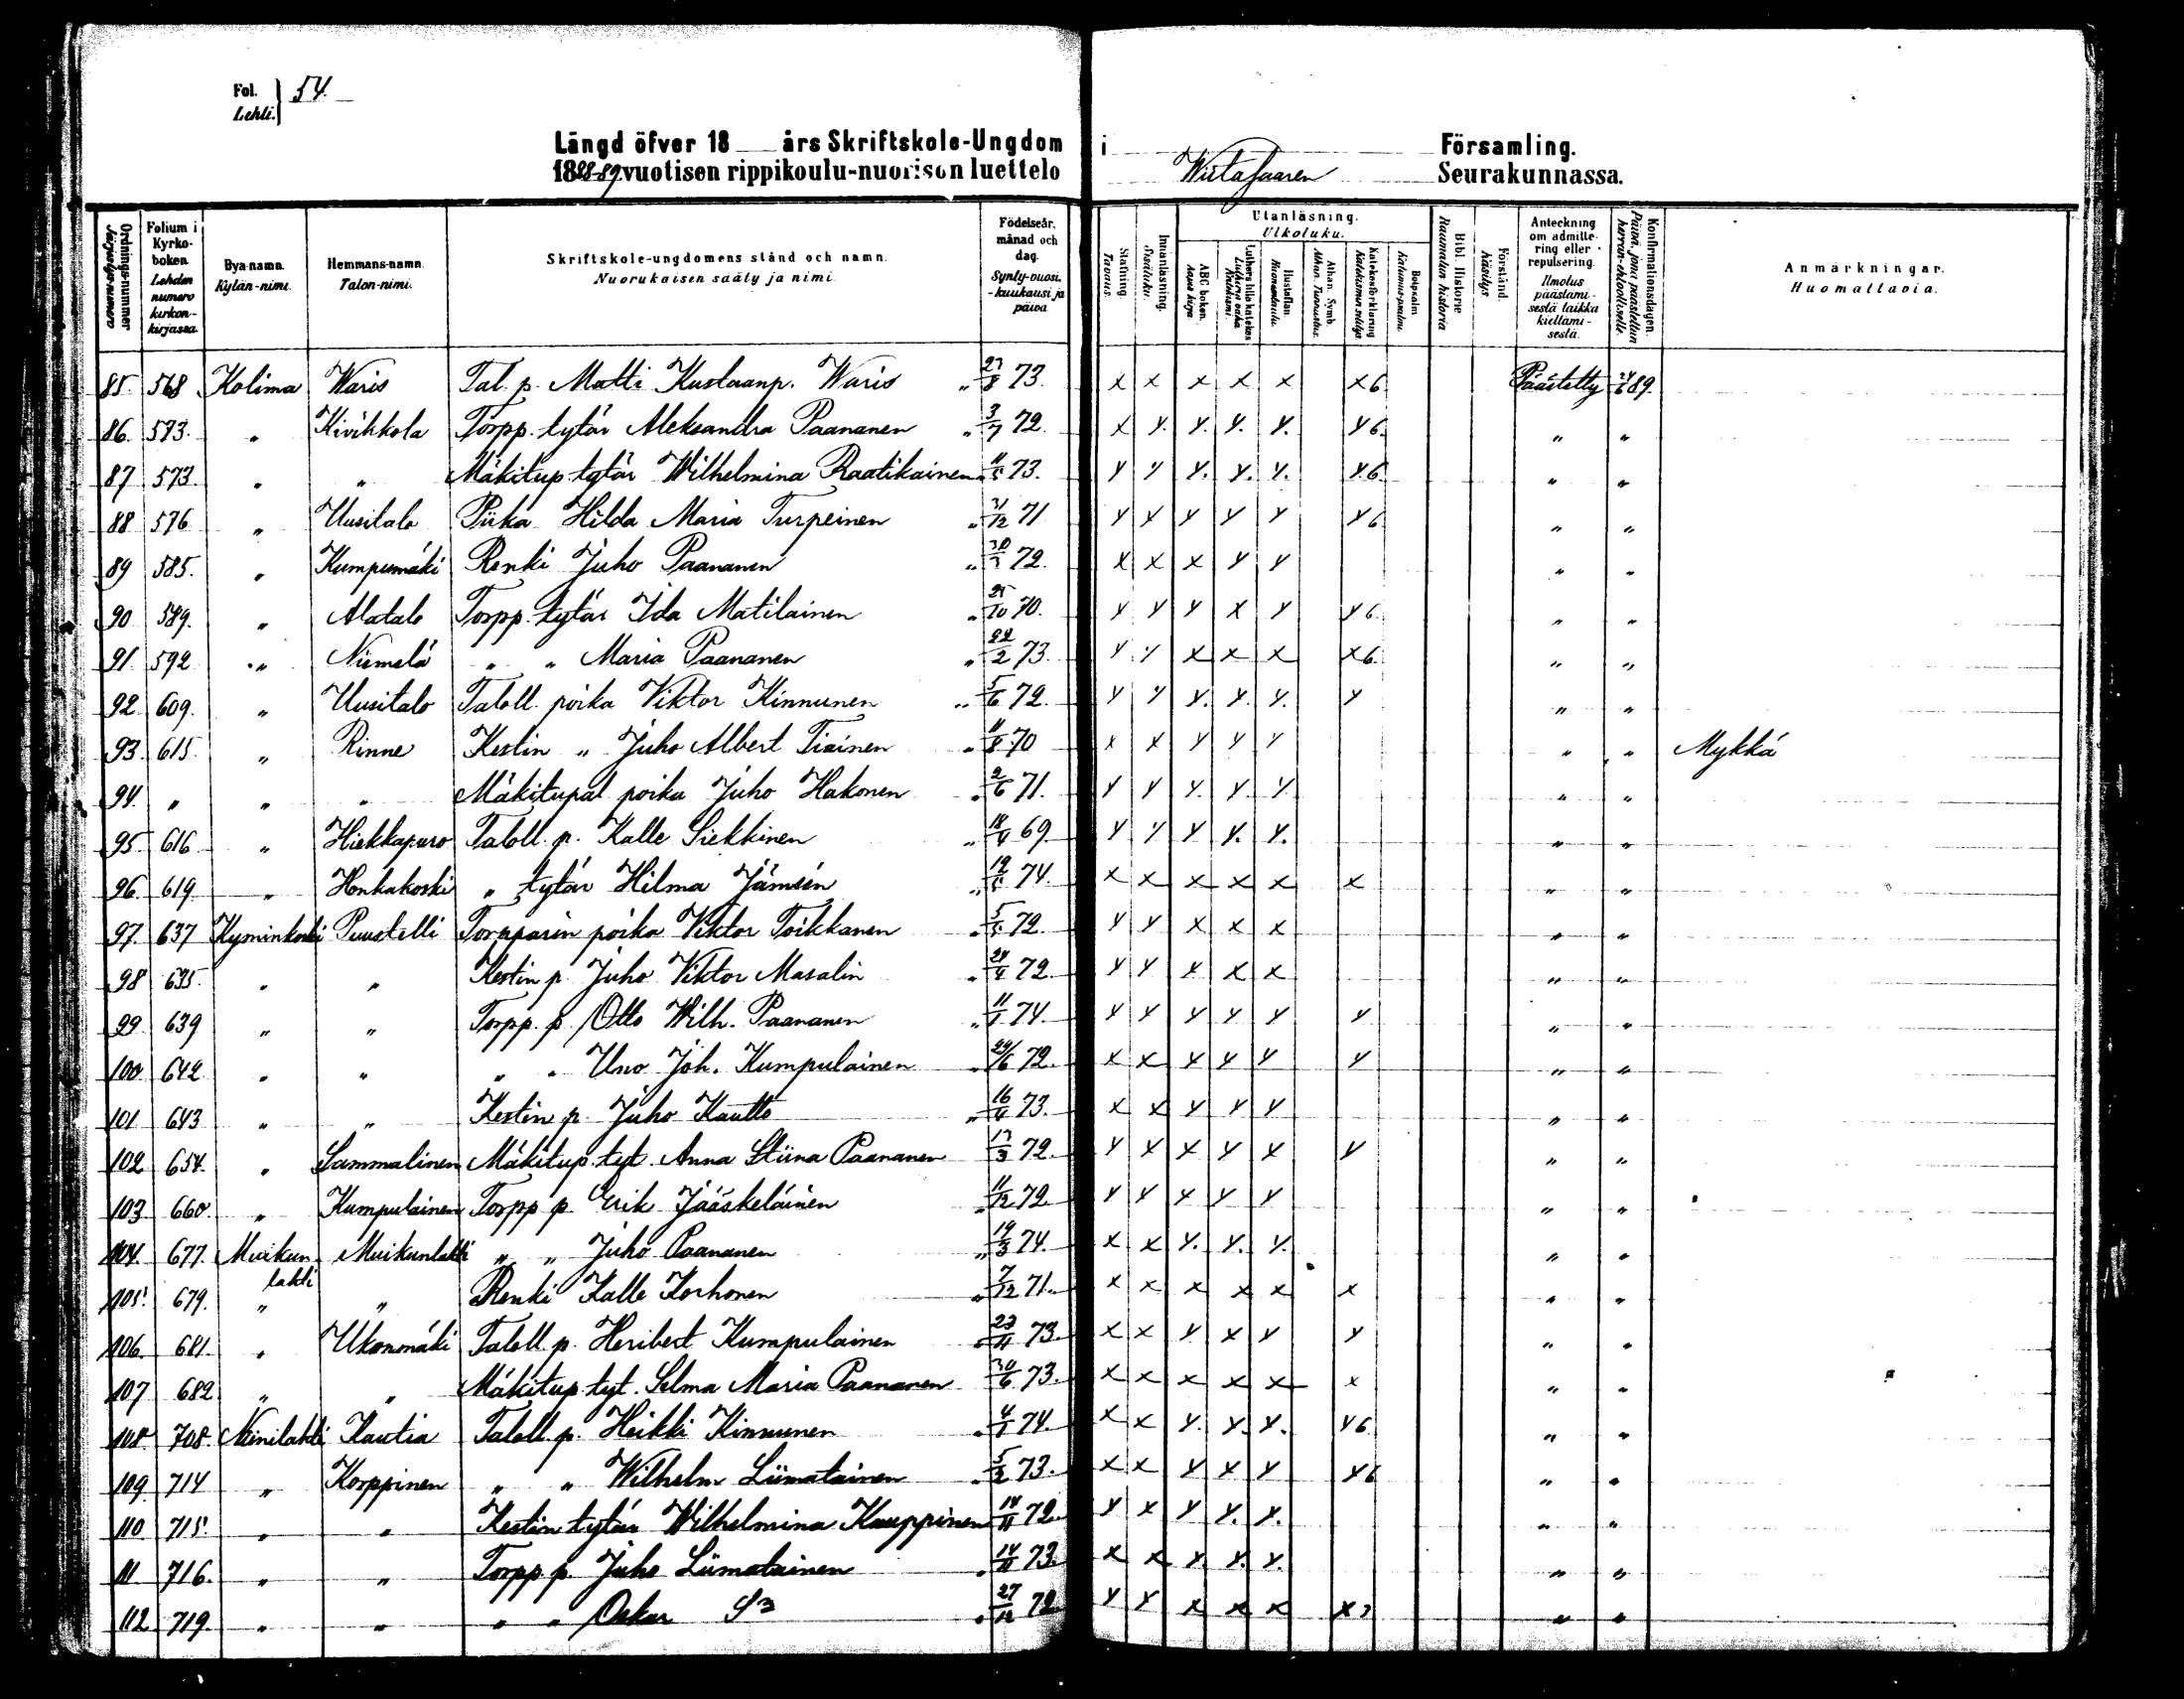 Fol. Lehti. } 54.
Längd öfver 18 års Skriftskole-Ungdom i Församling.
1888-89 vuotisen rippikoulu-nuorison luettelo Wiitasaaren Seurakunnassa.
Ordnings-nummer Järjestys-numero
Folium i Kyrkoboken. Lehden numero kirkon-kirjassa
Bya-namn. Kylän-nimi.
Hemmans-namn. Talon-nimi.
Skriftskole-ungdomens stånd och namn. Nuorukaisen sääty ja nimi.
Födelseår, månad och dag. Synty-vuosi, -kuukausi ja päivä
Stafning. Tavaus.
Innanläsning. Sisäluku.
Utanläsning. Ulkoluku.
ABC boken. Aapis kirja.
Luthers lilla katekes Lutherin vähä Katekismi
Hustaflan. Huoneentaulu.
Athan. Symb. Athan. Tunnustus.
Katekesförklaring Katekismus selitys
Botpsalm Katumus-psalmi.
Bibl. Historie Raamatun historia
Förstånd. Käsitys
Anteckning om admittering eller repulsering. Ilmoitus päästämisestä taikka kieltämisestä.
Konfirmationsdagen. Päivä, jona päästettiin herran-ehtoolliselle
Anmärkningar. Huomattavia.
85. 568 Kolima Waris Tal. p. Matti Kustaanp. Waris " 27/8 73. x x x x x x6 Päästetty 24/6 89.
86. 573. " Kivikkola Torpp. tytär Aleksandra Paananen " 3/7 72. x x. x. x. x. x6. " "
87 573. " " Mäkitup. tytär Wilhelmina Raatikainen " 11/5 73. x x x. x. x. x6. " "
88 576 " Uusitalo Piika Hilda Maria Turpeinen " 31/12 71 x x x x x x6 " "
89 585. " Kumpumäki Renki Juho Paananen " 30/3 72. x x x x x " "
90 589. " Alatalo Torpp. tytär Ida Matilainen " 25/10 70. x x x x x x6. " "
91. 592 " Niemelä " " Maria Paananen " 22/2 73. x x x x x x6. " "
92 609. " Uusitalo Taloll. poika Viktor Kinnunen " 5/6 72. x x x. x. x. x " "
93. 615. " Rinne Kestin " Juho Albert Tiainen " 11/8 70 x x x x x " " Mykkä
94. " " " Mäkitupal poika Juho Hakonen " 2/6 71. x x x. x. x. " "
95 616 " Hiekkapuro Taloll. p. Kalle Siekkinen " 18/4 69 x x x x. x. " "
96 619. " Honkakoski " tytär Hilma Jämsén " 12/5 74. x x x x x x " "
97. 637 Kyminkoski Puustelli Torpparin poika Viktor Toikkanen " 5/5 72. x x x x x " "
98 635. " " Kestin p. Juho Viktor Masalin " 24/4 72. x x x x x " "
99 639 " " Torpp. p. Otto Wilh. Paananen " 11/1 74. x x x x x x " "
100 642 " " " " Uno Joh. Kumpulainen " 29/6 72. x x x x x x " "
101 643 " " Kestin p. Juho Kautto " 16/4 73. x x x x x " "
102 654. " Sammalinen Mäkitup. tyt. Anna Stiina Paananen 17/3 72. x x x x x x " "
103 660. " Kumpulainen Torpp p. Erik Jääskeläinen " 11/12 72 x x x x x " "
104. 677. Muikunlahti Muikunlahti " " Juho Paananen " 19/3 74. x x x. x. x. " "
105. 679. " " Renki Kalle Korhonen " 7/12 71. x x x x x x " "
106. 681. " Ukonmäki Taloll. p. Heribert Kumpulainen " 23/11 73. x x x x x x " "
107 682 " " Mäkitup. tyt. Selma Maria Paananen 30/6 73. x x x x x x " "
108. 708. Niinilahti Kautia Taloll. p. Heikki Kinnunen " 4/1 74. x x x. x. x. x6 " "
109. 714 " Korppinen " " Wilhelm Liimatainen " 5/2 73. x x x x x x6 " "
110 715. " " Kestin tytär Wilhelmina Kauppinen 14/11 72. x x x x. x. " "
111. 716. " " Torpp p. Juho Liimatainen " 14/11 73. x x x. x. x. " "
112 719. " " " " Oskar " 27/12 72 x x x x x x " "